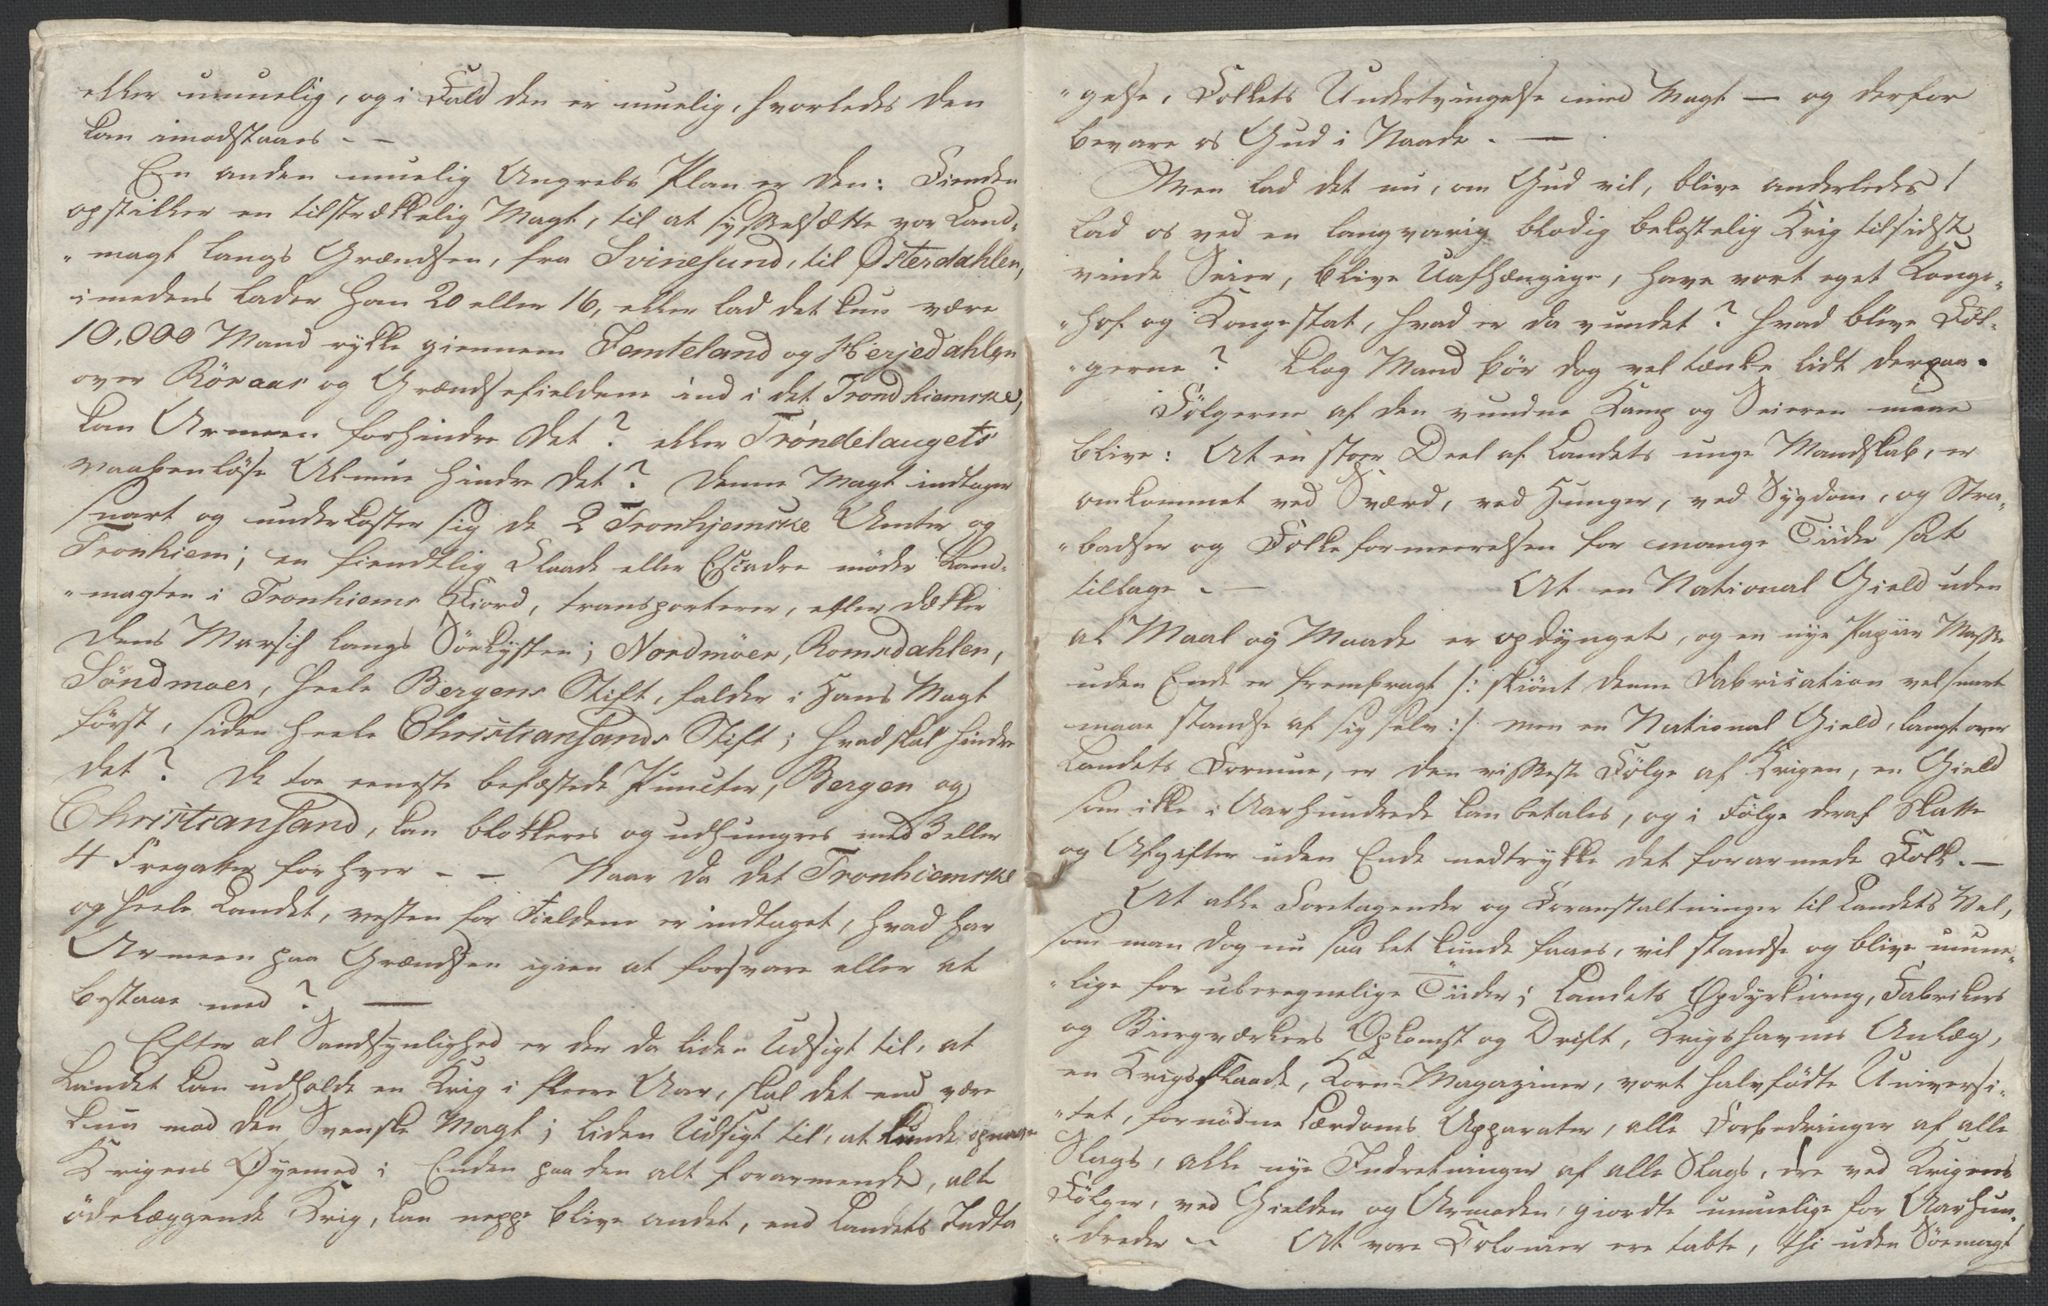 eller umuelig, og i Fald den er muelig, hvorledes den
kan imodstaaes - -
En anden muelig Angrebs Plan er den: Fienden
opstiller en tilstrækkelig Magt, til at sysselsætte vor Land-
"magt langs Grændsen, fra Svinesund, til Østerdahlen,
imedens lader han 20 eller 16, eller lad det kun være
10,000 Mand rykke giennem Jemteland og Herjedahlen
over Röraas og Grændsefieldene ind i det Trondhiemske,
kan Armeen forhindre det? eller Trøndelaugets
vaabenløse Almue hindre det? Denne Magt indtager
snart og underkaster sig de 2 Tronhjemske Amter og
Tronhiem; en fiendtlig Flaade eller Escadre møder Land-
"magten i Tronhiems Fiord, transporterer, eller dækker
dens Marsch langs Söekysten; Nordmöer, Romsdahlen,
Söndmoer, heele Bergens Stift, falder i Hans Magt
først, siden heele Christiansands Stift; hvad skal hindre
det? De toe eeneste befæstede Puncter, Bergen og
Christiansand, kan blokkeres og udhungres med 3 eller
4 Fregatter for hver - - Naar da det Tronhiemske
og heele Landet, vesten for Fieldene er indtaget, hvad har
Armeen paa Grændsen igien at forsvare eller at
bestaae med? —
Efter al Sandsynlighed er der da liden Udsigt til, at
Landet kan udholde en Krig i fleere Aar, skal det end være
kun mod den Svenske Magt; liden Udsigt til, at kunde opnaae
Krigens Øyemed i Enden paa den alt forarmende, alt
ödelæggende Krig, kan neppe blive andet, end Landets Indta
"gelse, Folkets Undertvingelse med Magt — og derfor
bevare os Gud i Naade. —
Men lad det nu, om Gud vil, blive anderledes!
lad os ved en langvarig blodig bekostelig Krig tilsidst
vinde Seier, blive Uafhængige, have vort eget Konge-
"hof og Kongestat, hvad er da vundet? hvad blive Føl-
"gerne? Klog Mand bör dog vel tænke lidt derpaa.
Fölgerne af den vundne Kamp og Seieren maae
blive: At en stor Deel af Landets unge Mandskab, er
omkommet ved Sværd, ved Hunger, ved Sygdom, og Stra-
"badser og Folkeformeerelsen for mange Tiider sat
tilbage. — At en National Gield uden
al Maal og Maade er opdynget, og en nye Papiir Masse
uden Ende er frembragt /: skiönt denne Fabrication vel snart
maae standse af sig selv :/ men en National Gield, langt over
Landets Formue, er den visseste Fölge af Krigen, en Gield
som ikke i Aarhundrede kan betales, og i Fölge deraf Skatte
og Afgifter uden Ende nedtrykke det forarmede Folk. —
At alle Foretagender og Foranstaltninger til Landets Vel,
som man dog nu saa let kunde faaes, vil standse og blive umue-
"lige for uberegnelige Tiider; Landets Opdyrkning, Fabrikers
og Biergværkers Opkomst og Drift, Krigshavnes Anlæg,
en Krigsflaade, Korn-Magaziner, vort halvfödte Universi-
"tet, fornödne Lærdoms Apparater, alle Forbedringer af alle
Slags, alle nye Indretninger af alle Slags, ere ved Krigens
Fölger, ved Gielden og Armoden, giordte umuelige for Aarhun-
"dreder — At vore Kolonier ere tabte, thi uden Söemagt